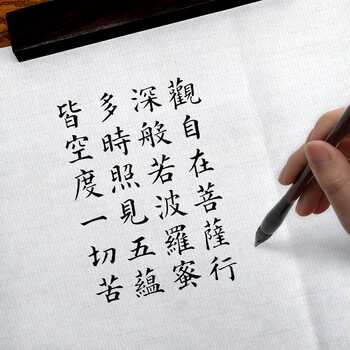 觀自在菩薩行
深般若波羅蜜
多時照見五蘊
皆空度一切苦